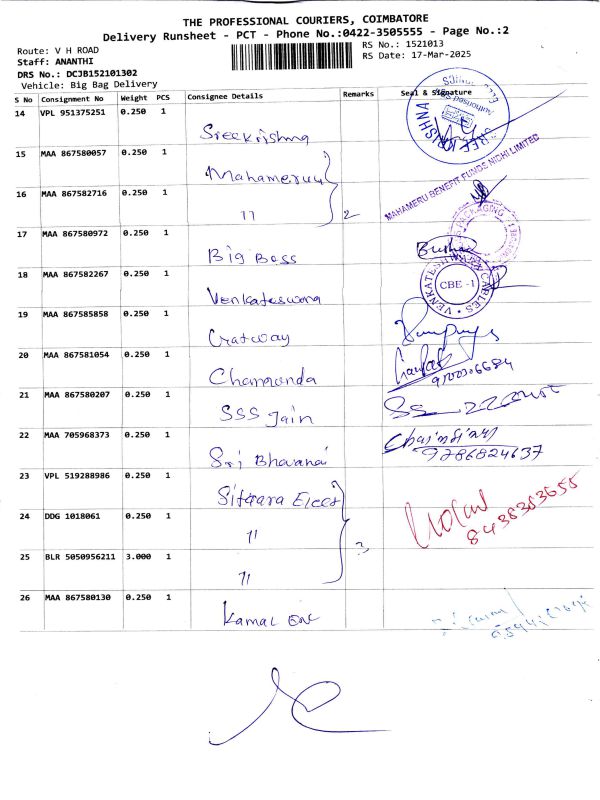 THE PROFESSIONAL COURIERS, COIMBATORE
Delivery Runsheet - PCT - Phone No.:0422-3505555 - Page No.:2
Route: V H ROAD
RS No.: 1521013
Staff: ANANTHI
RS Date: 17-Mar-2025
DRS No.: DCJB152101302
Vehicle: Big Bag Delivery
S No Consignment No Weight PCS Consignee Details Remarks Seal & Signature
14 VPL 951375251 0.250 1 Sreekrishna
SREE KRISHNA
Authorised
15 MAA 867580057 0.250 1 Mahameruu
MAHAMERU BENEFIT FUNDS NIDHI LIMITED
16 MAA 867582716 0.250 1 " 2
17 MAA 867580972 0.250 1 Big Boss
18 MAA 867582267 0.250 1 Venkateswara
VENKATESHWARA CABLES
CBE -1
19 MAA 867585858 0.250 1
20 MAA 867581054 0.250 1 Chamunda
21 MAA 867580207 0.250 1 SSS Jain
22 MAA 705968373 0.250 1 Sri Bhavani
9786824637
23 VPL 519288986 0.250 1 Sitaara Elect
24 DDG 1018061 0.250 1 " 3
8438383655
25 BLR 5050956211 3.000 1 "
26 MAA 867580130 0.250 1 Kamal